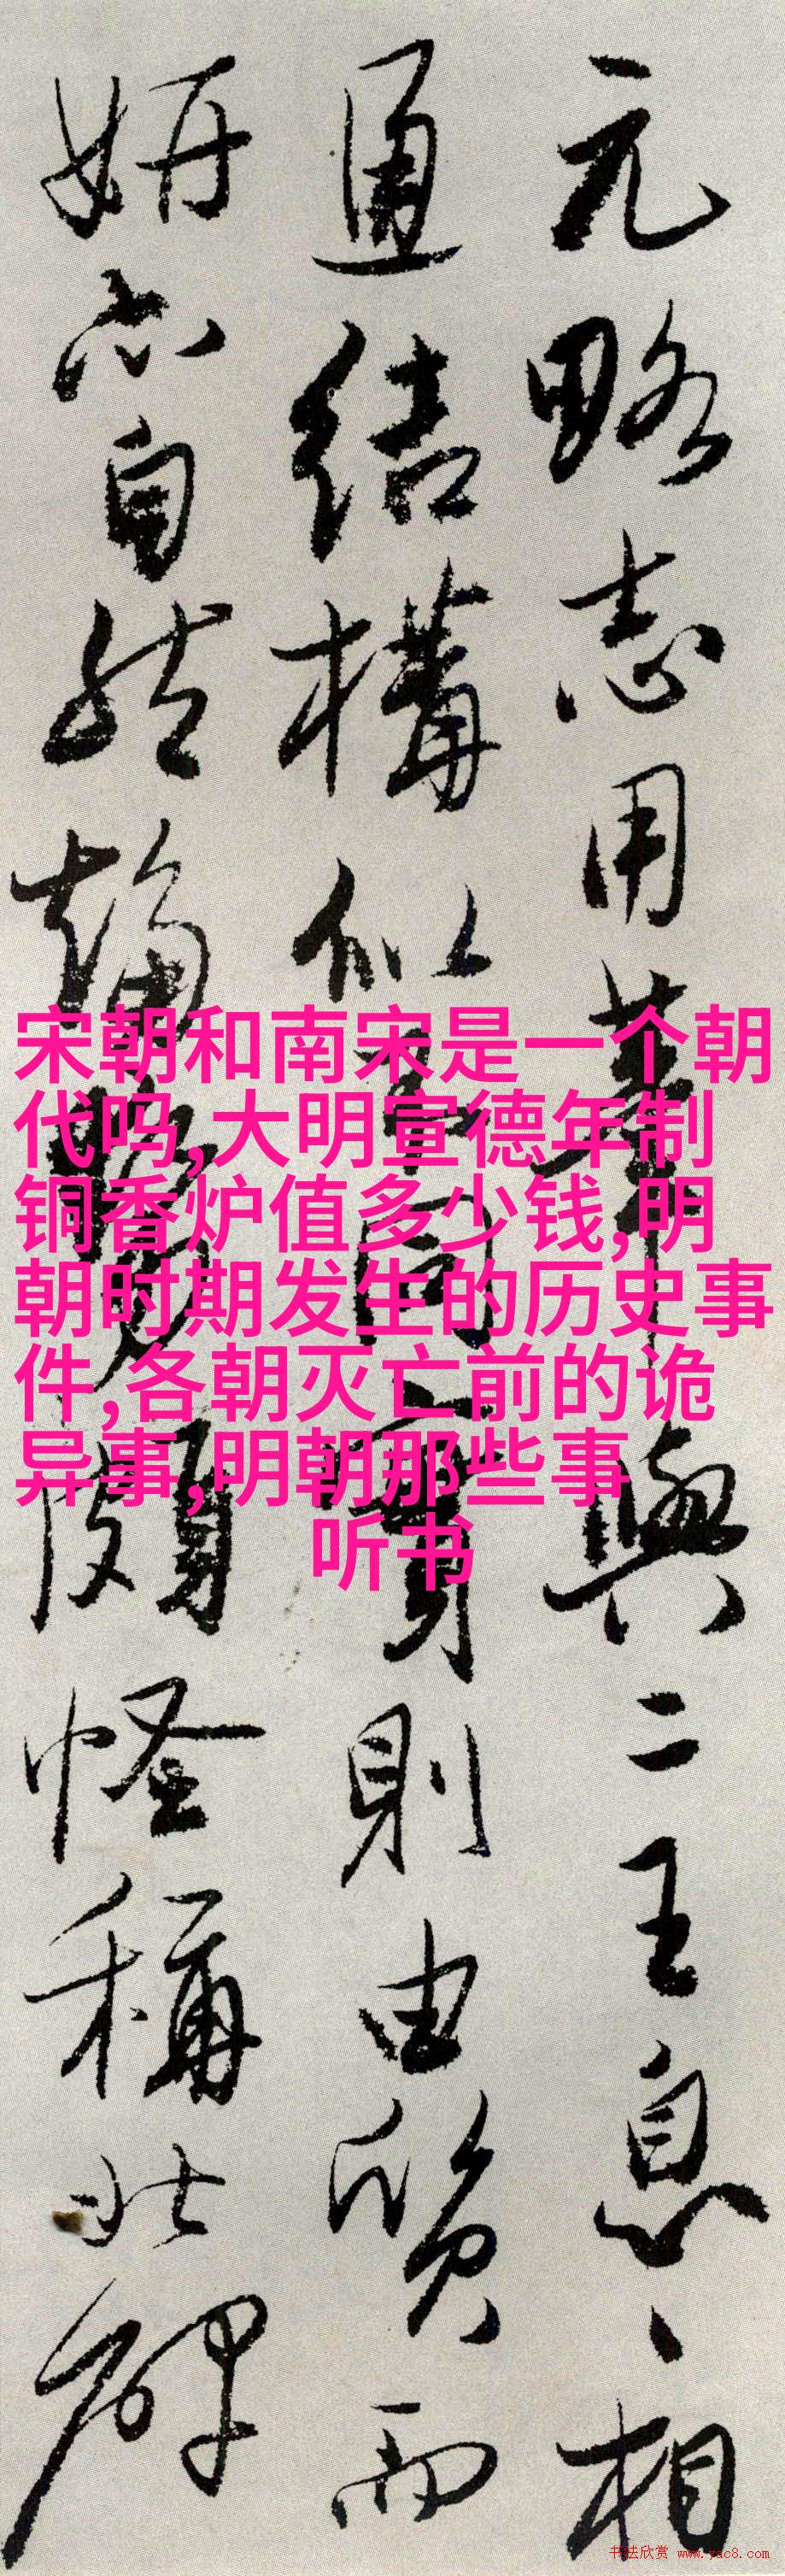 元略志用筆與二王息、相
通結構似不同實則由質而
妍亦自然趨勢頗怪稱北碑
宋朝和南宋是一个朝
代吗,大明宣德年制
铜香炉值多少钱,明
朝时期发生的历史事
件,各朝灭亡前的诡
异事,明朝那些事
听书
书法欣赏 www.yac8.com